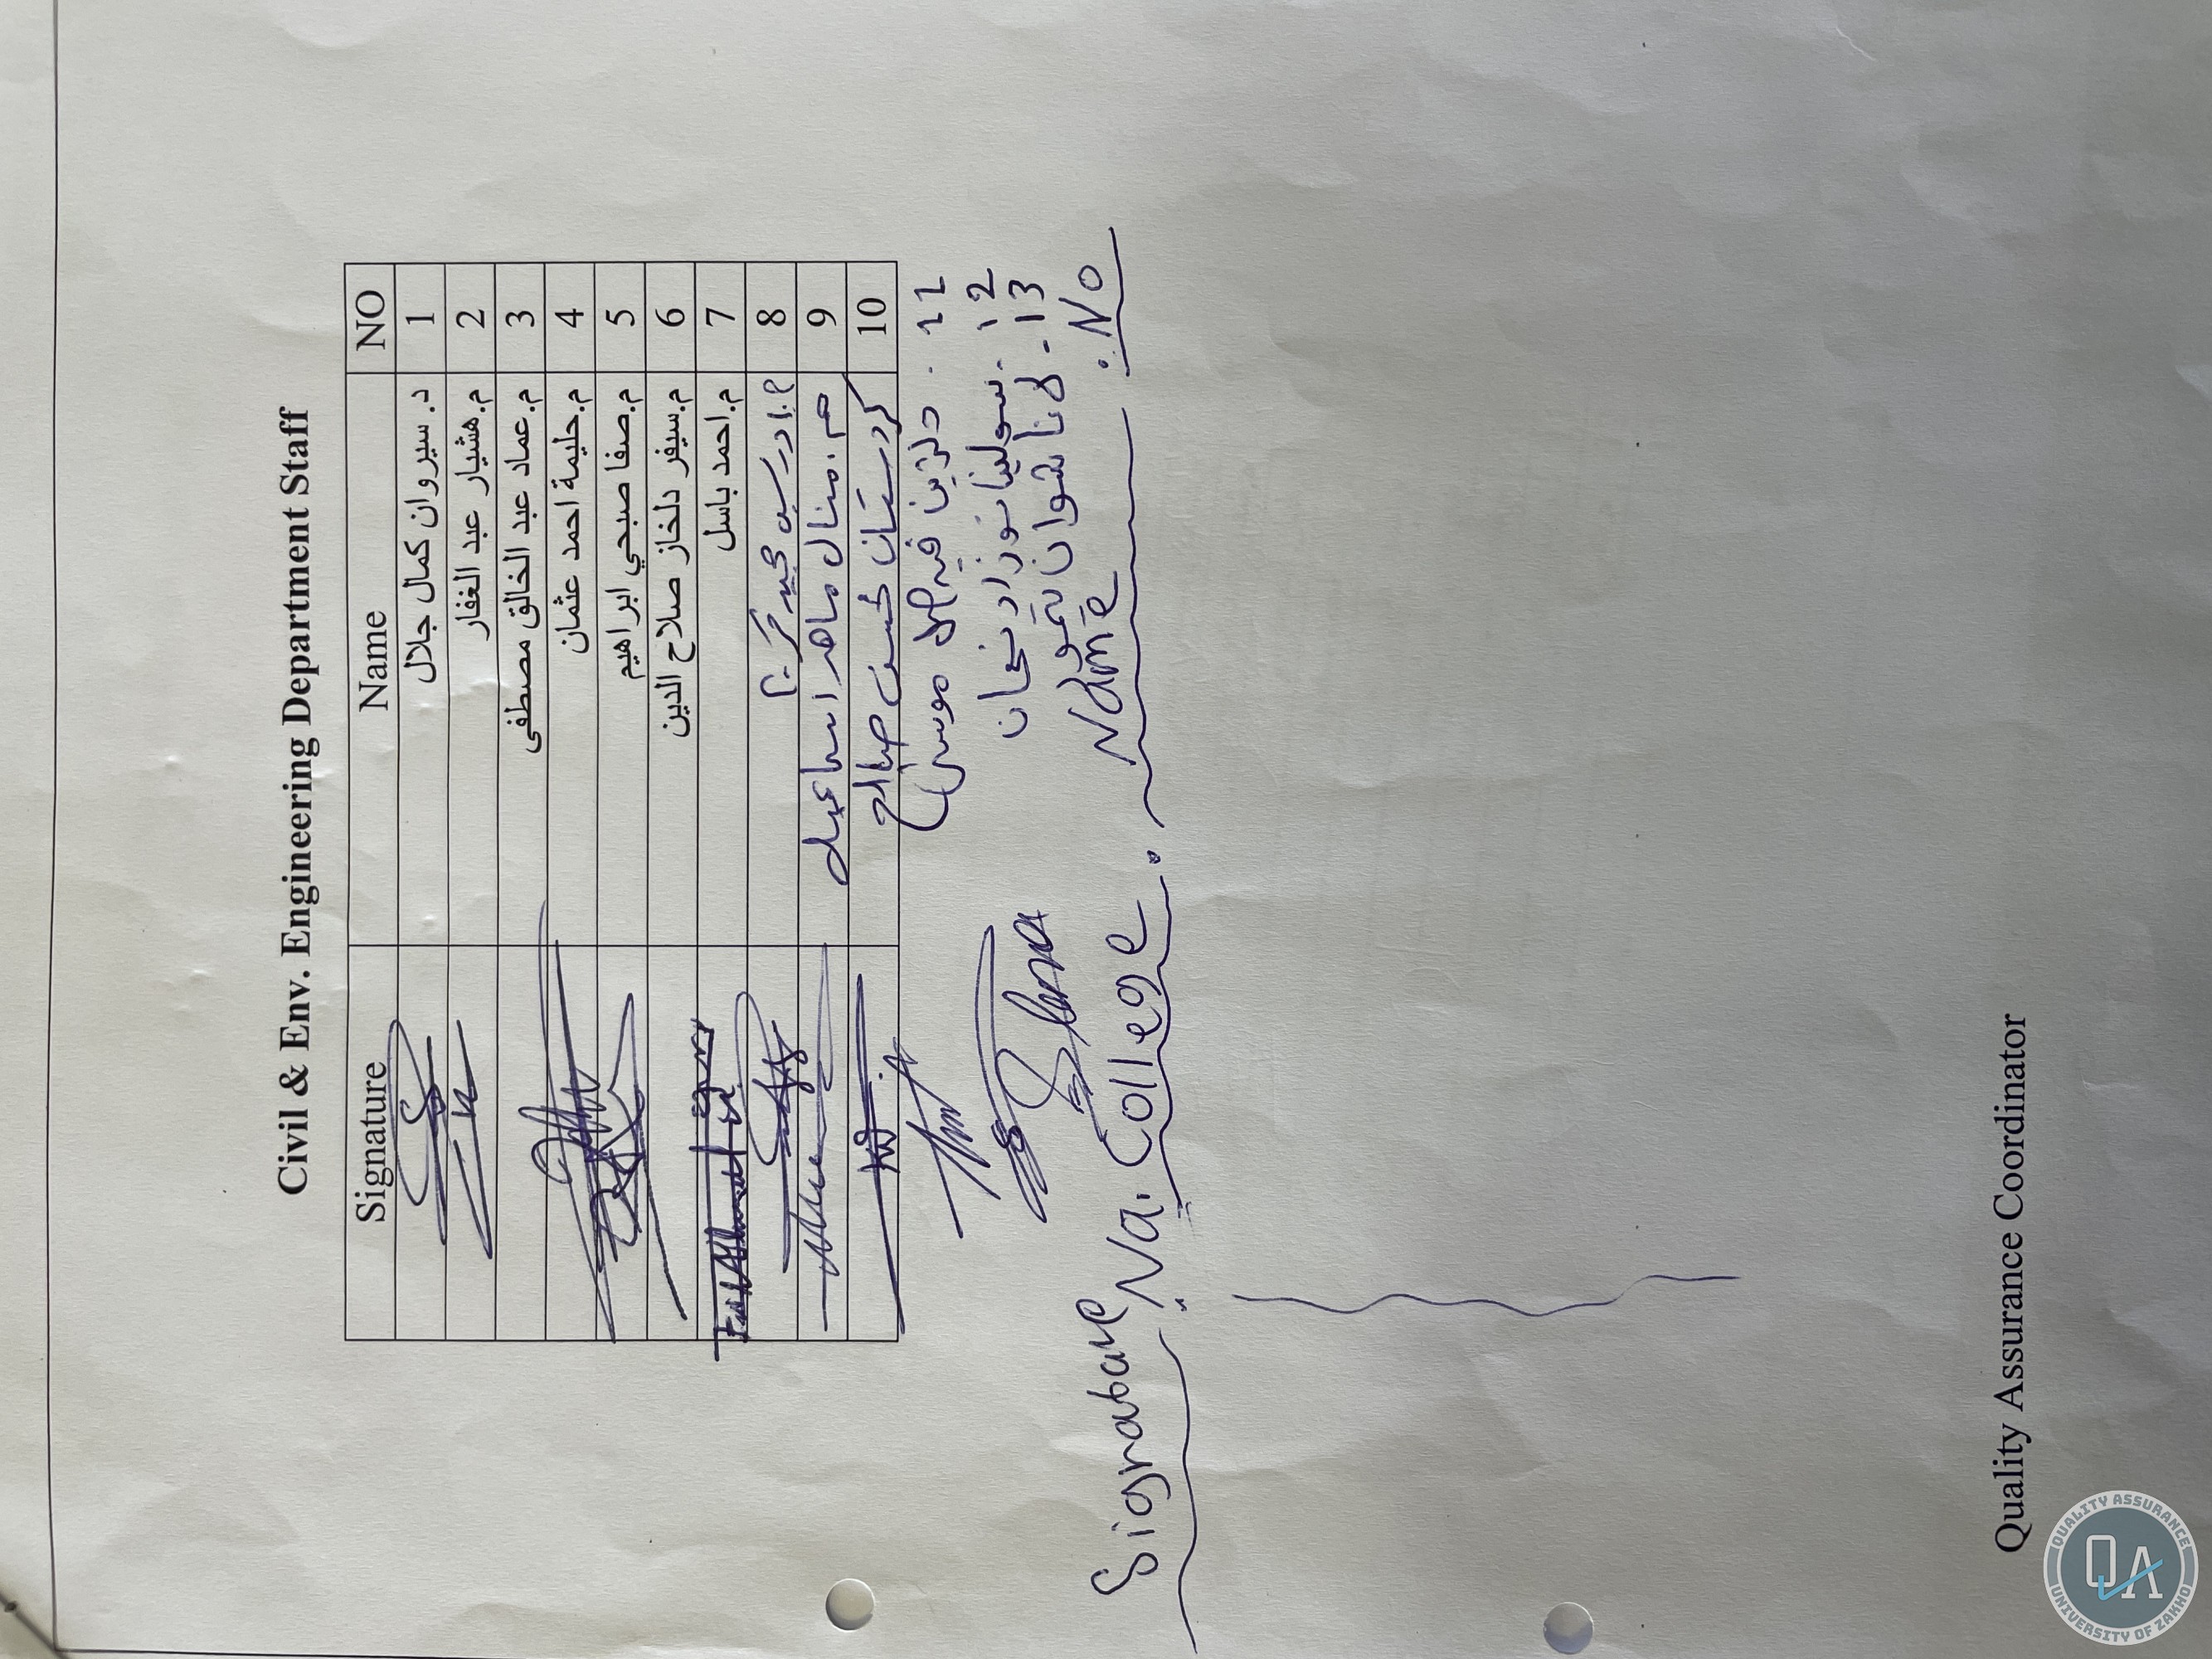 Civil & Env. Engineering Department Staff
Signature Name NO
د. سيروان كمال جلال 1
م.هشيار عبد الغفار 2
م.عماد عبد الخالق مصطفى 3
م.حليمة احمد عثمان 4
م.صفا صبحي ابراهيم 5
م.سيفر دلخاز صلاح الدين 6
م.احمد باسل 7
م.ادريس مجيد 8
م.م. منال ماهر اسماعيل 9
كردستان حسن صالح 10
دلژين موسى . 11
نوزاد .12
شوان 13-
Signature Na. College. Name .No
Quality Assurance Coordinator
QUALITY ASSURANCE
QA
UNIVERSITY OF ZAKHO